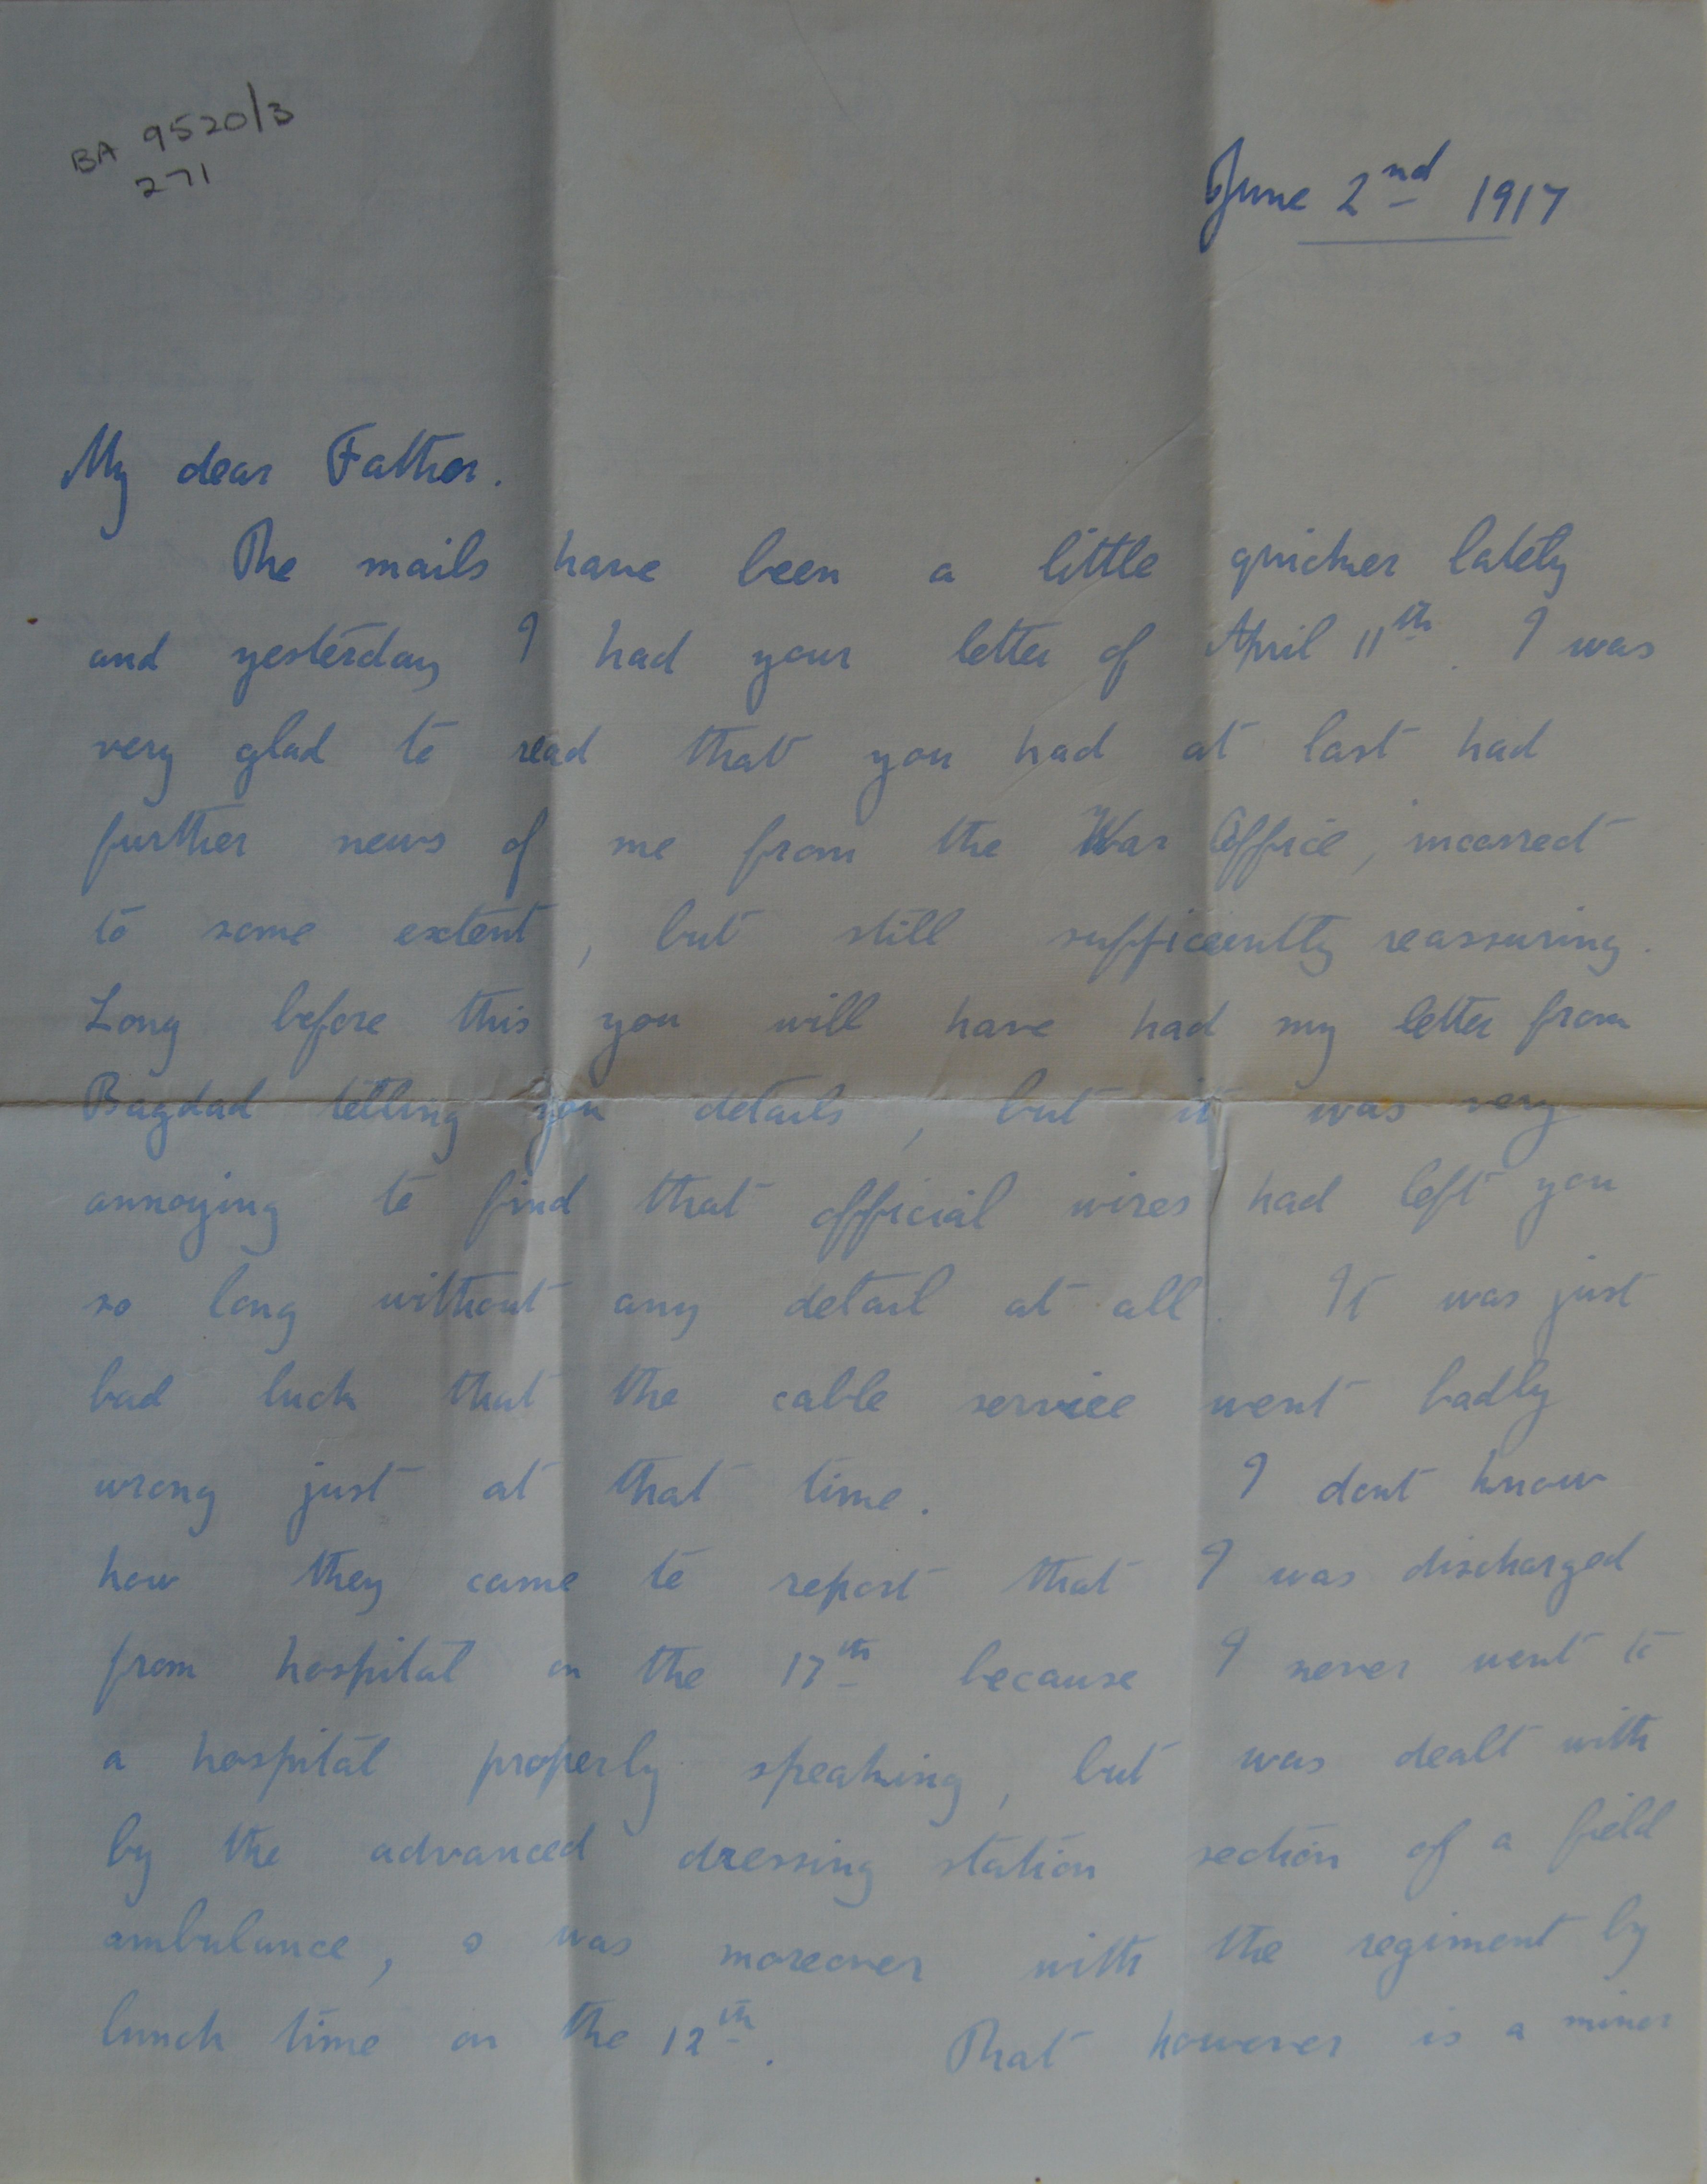 BA 9520/3
271
June 2nd 1917
My dear Father.
The mails have been a little quicker lately
and yesterday I had your letter of April 11th. I was
very glad to read that you had at last had
further news of me from the War Office, incorrect
to some extent, but still sufficiently reassuring.
Long before this you will have had my letter from
Bagdad telling you details, but it was very
annoying to find that official wires had left you
so long without any detail at all. It was just
bad luck that the cable service went badly
wrong just at that time. I dont know
how they came to report that I was discharged
from hospital on the 17th because I never went to
a hospital properly speaking, but was dealt with
by the advanced dressing station section of a field
ambulance, & was moreover with the regiment by
lunch time on the 12th. That however is a minor